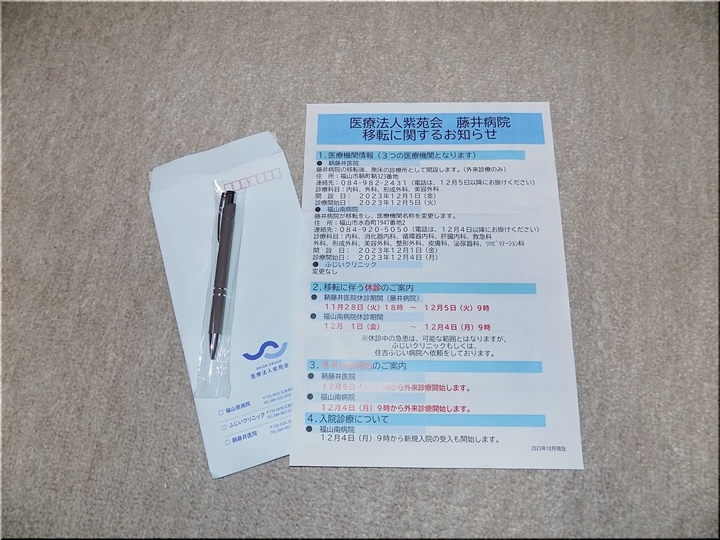 医療法人紫苑会　藤井病院
移転に関するお知らせ
１．医療機関情報（３つの医療機関となります）
● 鞆藤井医院
藤井病院の移転後、無床の診療所として開設します。（外来診療のみ）
住　所：福山市鞆町鞆323番地
連絡先：０８４-９８２-２４３１（電話は、１２月５日以降にお掛けください）
診療科目：内科、外科、形成外科、美容外科
開　設　日：　２０２３年１２月１日（金）
診療開始日：　２０２３年１２月５日（火）
● 福山南病院
藤井病院が移転をし、医療機関名称を変更します。
住　所：福山市水呑町1947番地2
連絡先：０８４-９２０-５０５０（電話は、１２月４日以降にお掛けください）
診療科目：内科、消化器内科、循環器内科、肝臓内科、救急科
外科、形成外科、美容外科、整形外科、皮膚科、泌尿器科、ﾘﾊﾋﾞﾘﾃｰｼｮﾝ科
開　設　日：　２０２３年１２月１日（金）
診療開始日：　２０２３年１２月４日（月）
● ふじいクリニック
変更なし
２．移転に伴う休診のご案内
● 鞆藤井医院休診期間（藤井病院）
１１月２８日（火）１８時　～　１２月５日（火）９時
● 福山南病院休診期間
１２月　１日（金）　～　１２月４日（月）９時
※休診中の急患は、可能な範囲とはなりますが、
ふじいクリニックもしくは、
住吉ふじい病院へ依頼をしております。
３．
のご案内
● 鞆藤井医院
１２月５日（火）９時から外来診療開始します。
● 福山南病院
１２月４日（月）９時から外来診療開始します。
４．入院診療について
● 福山南病院
１２月４日（月）９時から新規入院の受入も開始します。
2023年10月現在
SHION GROUP
医療法人紫苑会
□ 福山南病院
□ ふじいクリニック
□ 鞆藤井医院